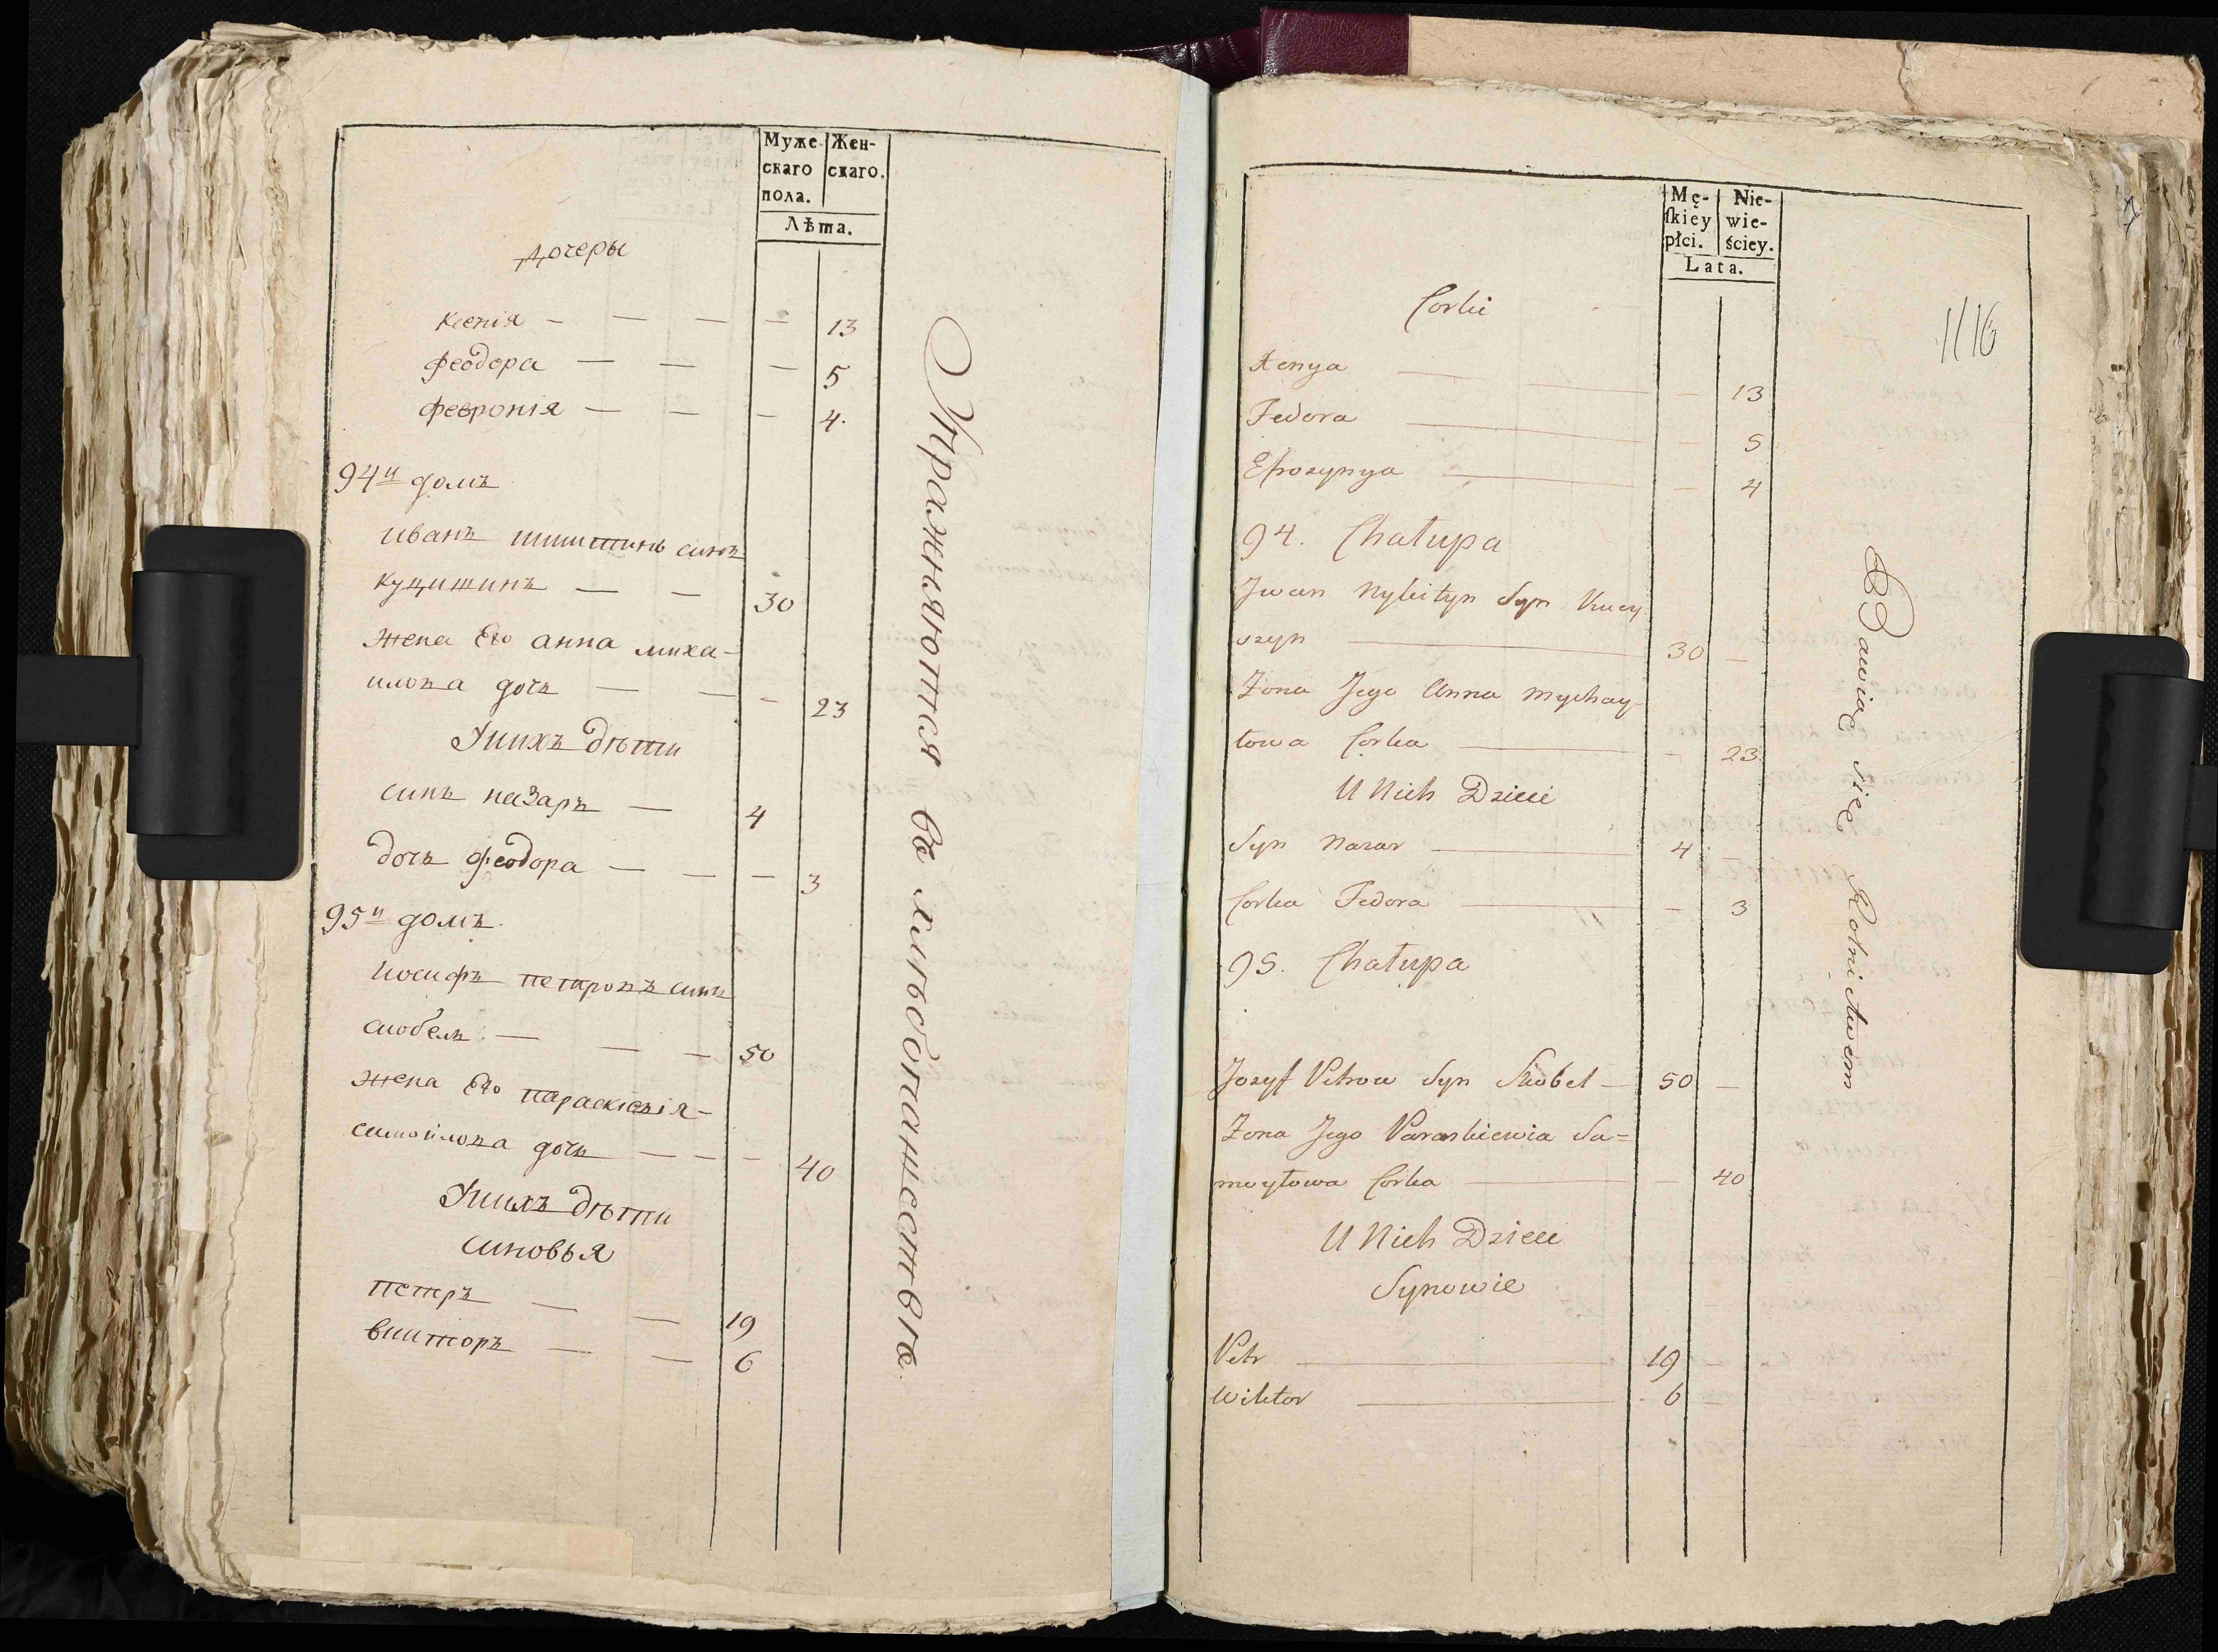 Муже-
скаго
пола.
Жен-
скаго.
Лѣта.
дочеры
ксенія — — — — 13
феодора — — — 5
февронія — — — 4.
94й домъ
иванъ никитинъ синъ
куцишинъ — — 30
жена Его анна миха-
илова дочъ — — — 23
У нихъ дѣти
синъ назаръ — 4
дочъ феодора — — — 3
95й домъ.
иосифъ петровъ синъ
скобелъ — — — 50
жена Его параскієвія-
самойлова дочъ — — — 40
У нихъ дѣти
синовья
петръ — — 19
викторъ — — 6
Упражняются въ хлѣбопашествѣ.
Mę-
ſkiey
płci.
Nie-
wie-
ściey.
Lata.
1116
Corki
Xenya — — — 13
Fedora — — 5
Efrozynya — — 4
94. Chałupa
Jwan Nykityn Syn Kucy
szyn — 30 —
Zona Jego Anna Mychay-
łowa Corka — — 23
U Nich Dzieci
Syn Nazar — 4 —
Corka Fedora — — 3
95. Chałupa
Jozyf Petrow Syn Skobel — 50 —
Zona Jego Paraskiewia Sa=
moyłowa Corka — — 40
U Nich Dzieci
Synowie
Petr — 19 —
Wiktor — 6 —
Bawią się Rolnictwem